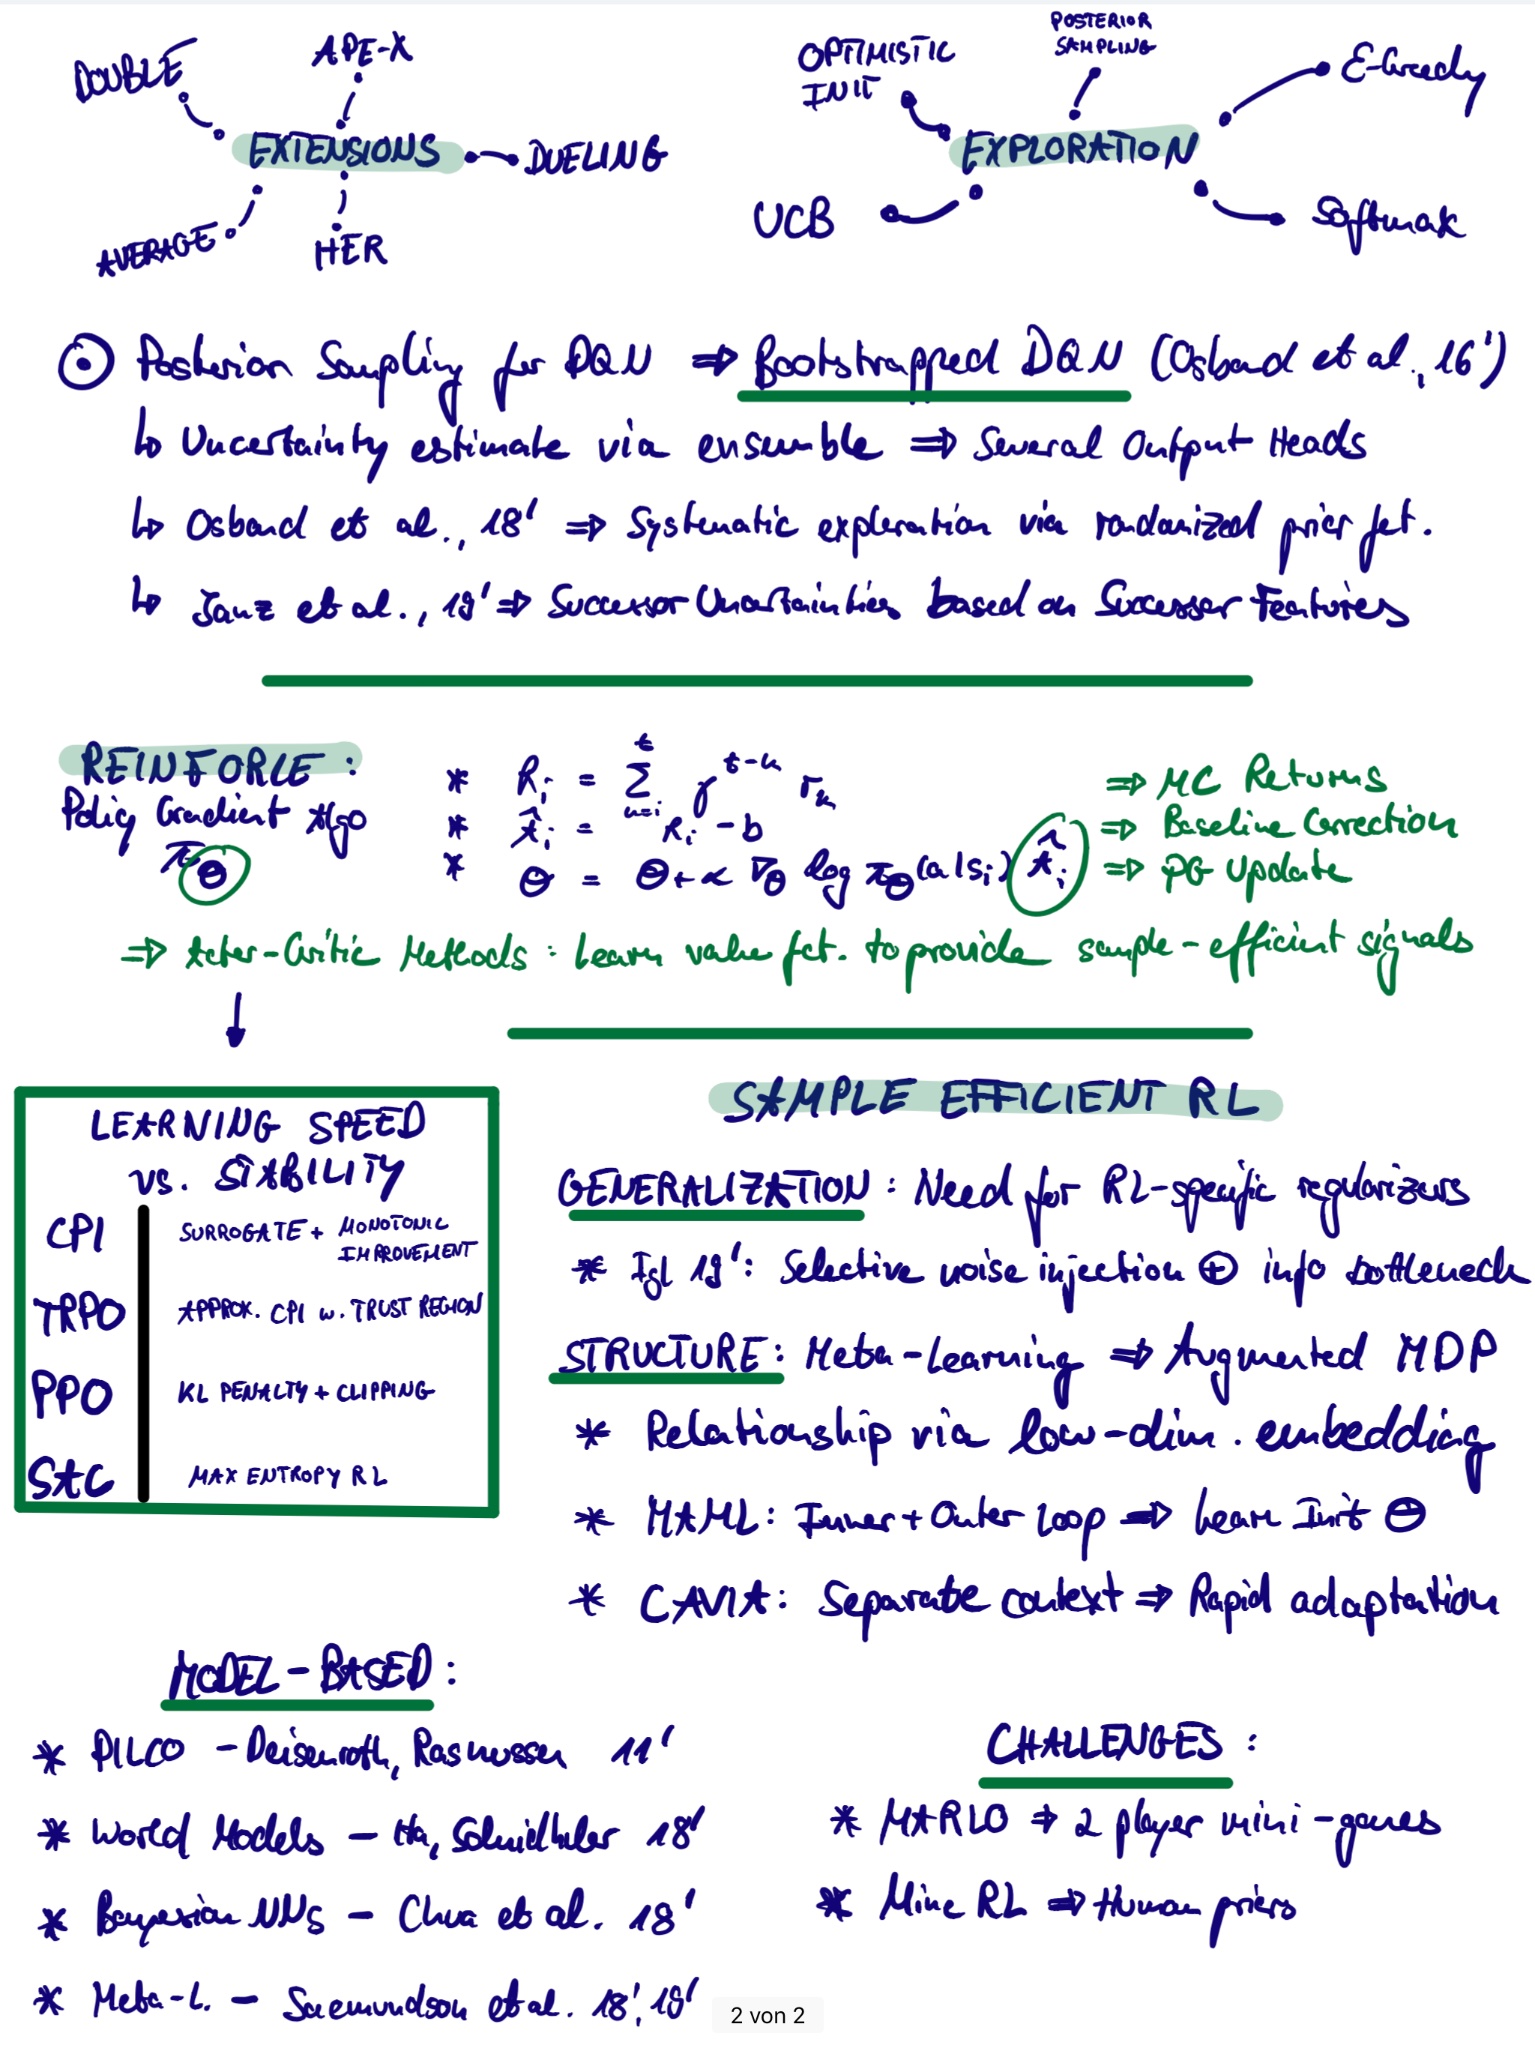 DOUBLE
APE-X
EXTENSIONS
DUELING
AVERAGE
HER
OPTIMISTIC
INIT
POSTERIOR
SAMPLING
E-Greedy
EXPLORATION
UCB
Softmax
Posterior Sampling for DQN ⇒ Bootstrapped DQN (Osband et al., 16')
↳ Uncertainty estimate via ensemble ⇒ Several Output Heads
↳ Osband et al., 18' ⇒ Systematic exploration via randomized prior fct.
↳ Janz et al., 19' ⇒ Successor Uncertainties based on Successor Features
REINFORCE:
Policy Gradient Algo
π_θ
* R_i = Σ_{k=i}^{t} γ^{t-k} r_k ⇒ MC Returns
* Â_i = R_i - b ⇒ Baseline Correction
* θ = θ + α ∇_θ log π_θ(a|s_i) Â_i ⇒ PG Update
⇒ Actor-Critic Methods: Learn value fct. to provide sample-efficient signals
LEARNING SPEED
vs. STABILITY
CPI SURROGATE + MONOTONIC
IMPROVEMENT
TRPO APPROX. CPI w. TRUST REGION
PPO KL PENALTY + CLIPPING
SAC MAX ENTROPY RL
SAMPLE EFFICIENT RL
GENERALIZATION: Need for RL-specific regularizers
* Igl 19': Selective noise injection ⊕ info bottleneck
STRUCTURE: Meta-Learning ⇒ Augmented MDP
* Relationship via low-dim. embedding
* MAML: Inner + Outer Loop ⇒ Learn Init θ
* CAVIA: Separate context ⇒ Rapid adaptation
MODEL-BASED:
* PILCO - Deisenroth, Rasmussen 11'
* World Models - Ha, Schmidhuber 18'
* Bayesian NNs - Chua et al. 18'
* Meta-L. - Saemundson et al. 18', 19'
CHALLENGES:
* MARLO ⇒ 2 player mini-games
* Mine RL ⇒ Human priors
2 von 2